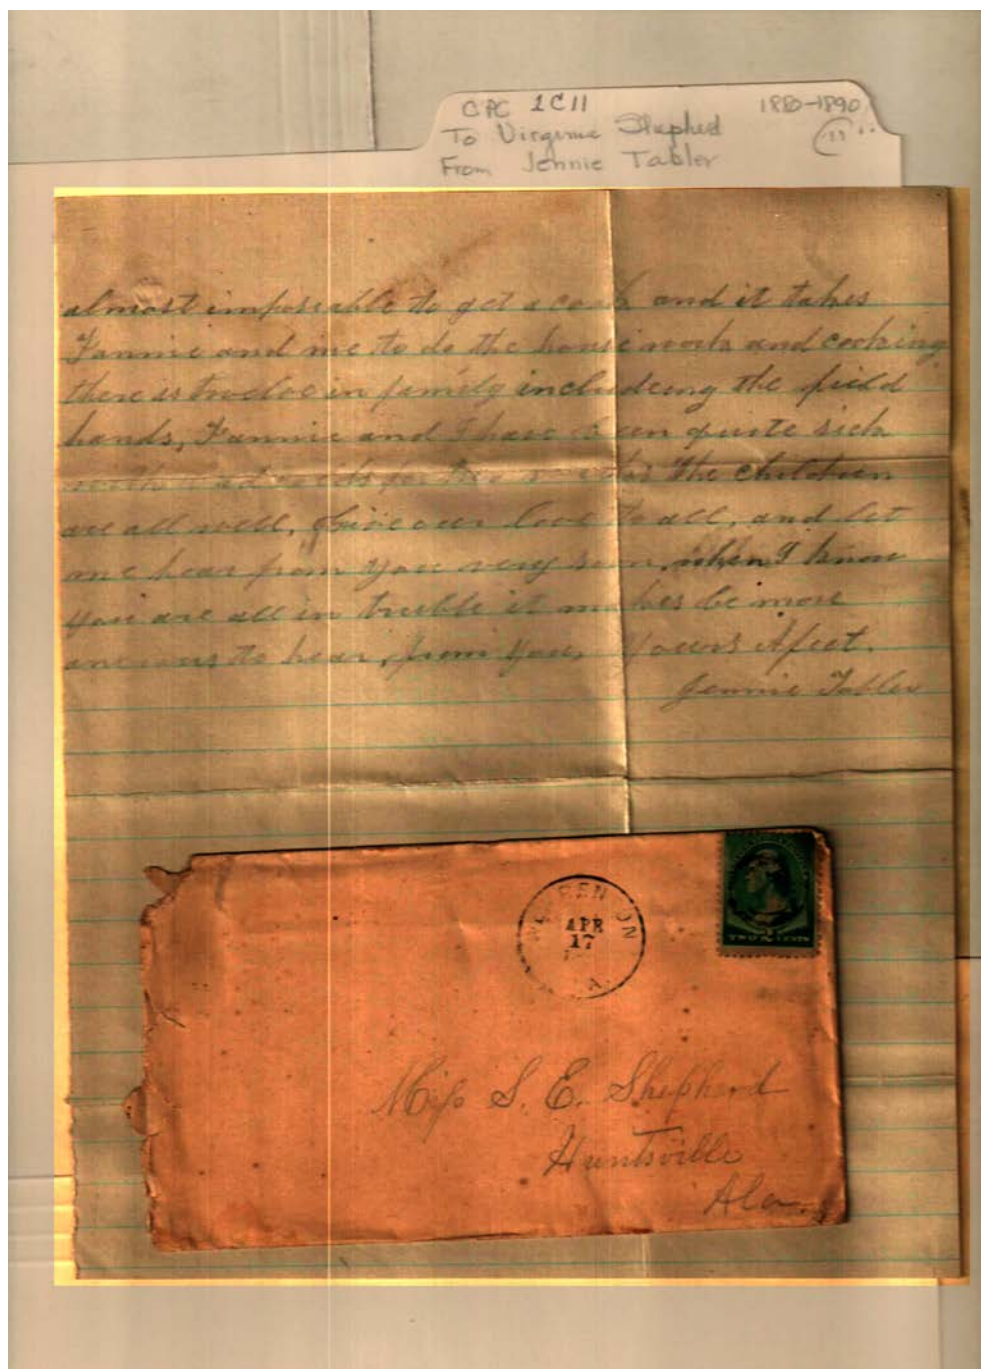 CPC 1C11 1880-1890
To Virginia Shepherd
From Jennie Tabler
almost impossable to get a cook and it takes
Fannie and me to do the housework and cooking
there is twelve in family includeing the field
hands, Fannie and I have been quite sick
with bad colds for two weeks The children
are all well, Give our love to all, and let
me hear from you very soon, when I know
you are all in truble it makes be more
to hear from you, Yours Afect.
Jennie Tabler
APR
17
A
TWO CENTS
Miss S. E. Shepherd
Huntsville
Ala.